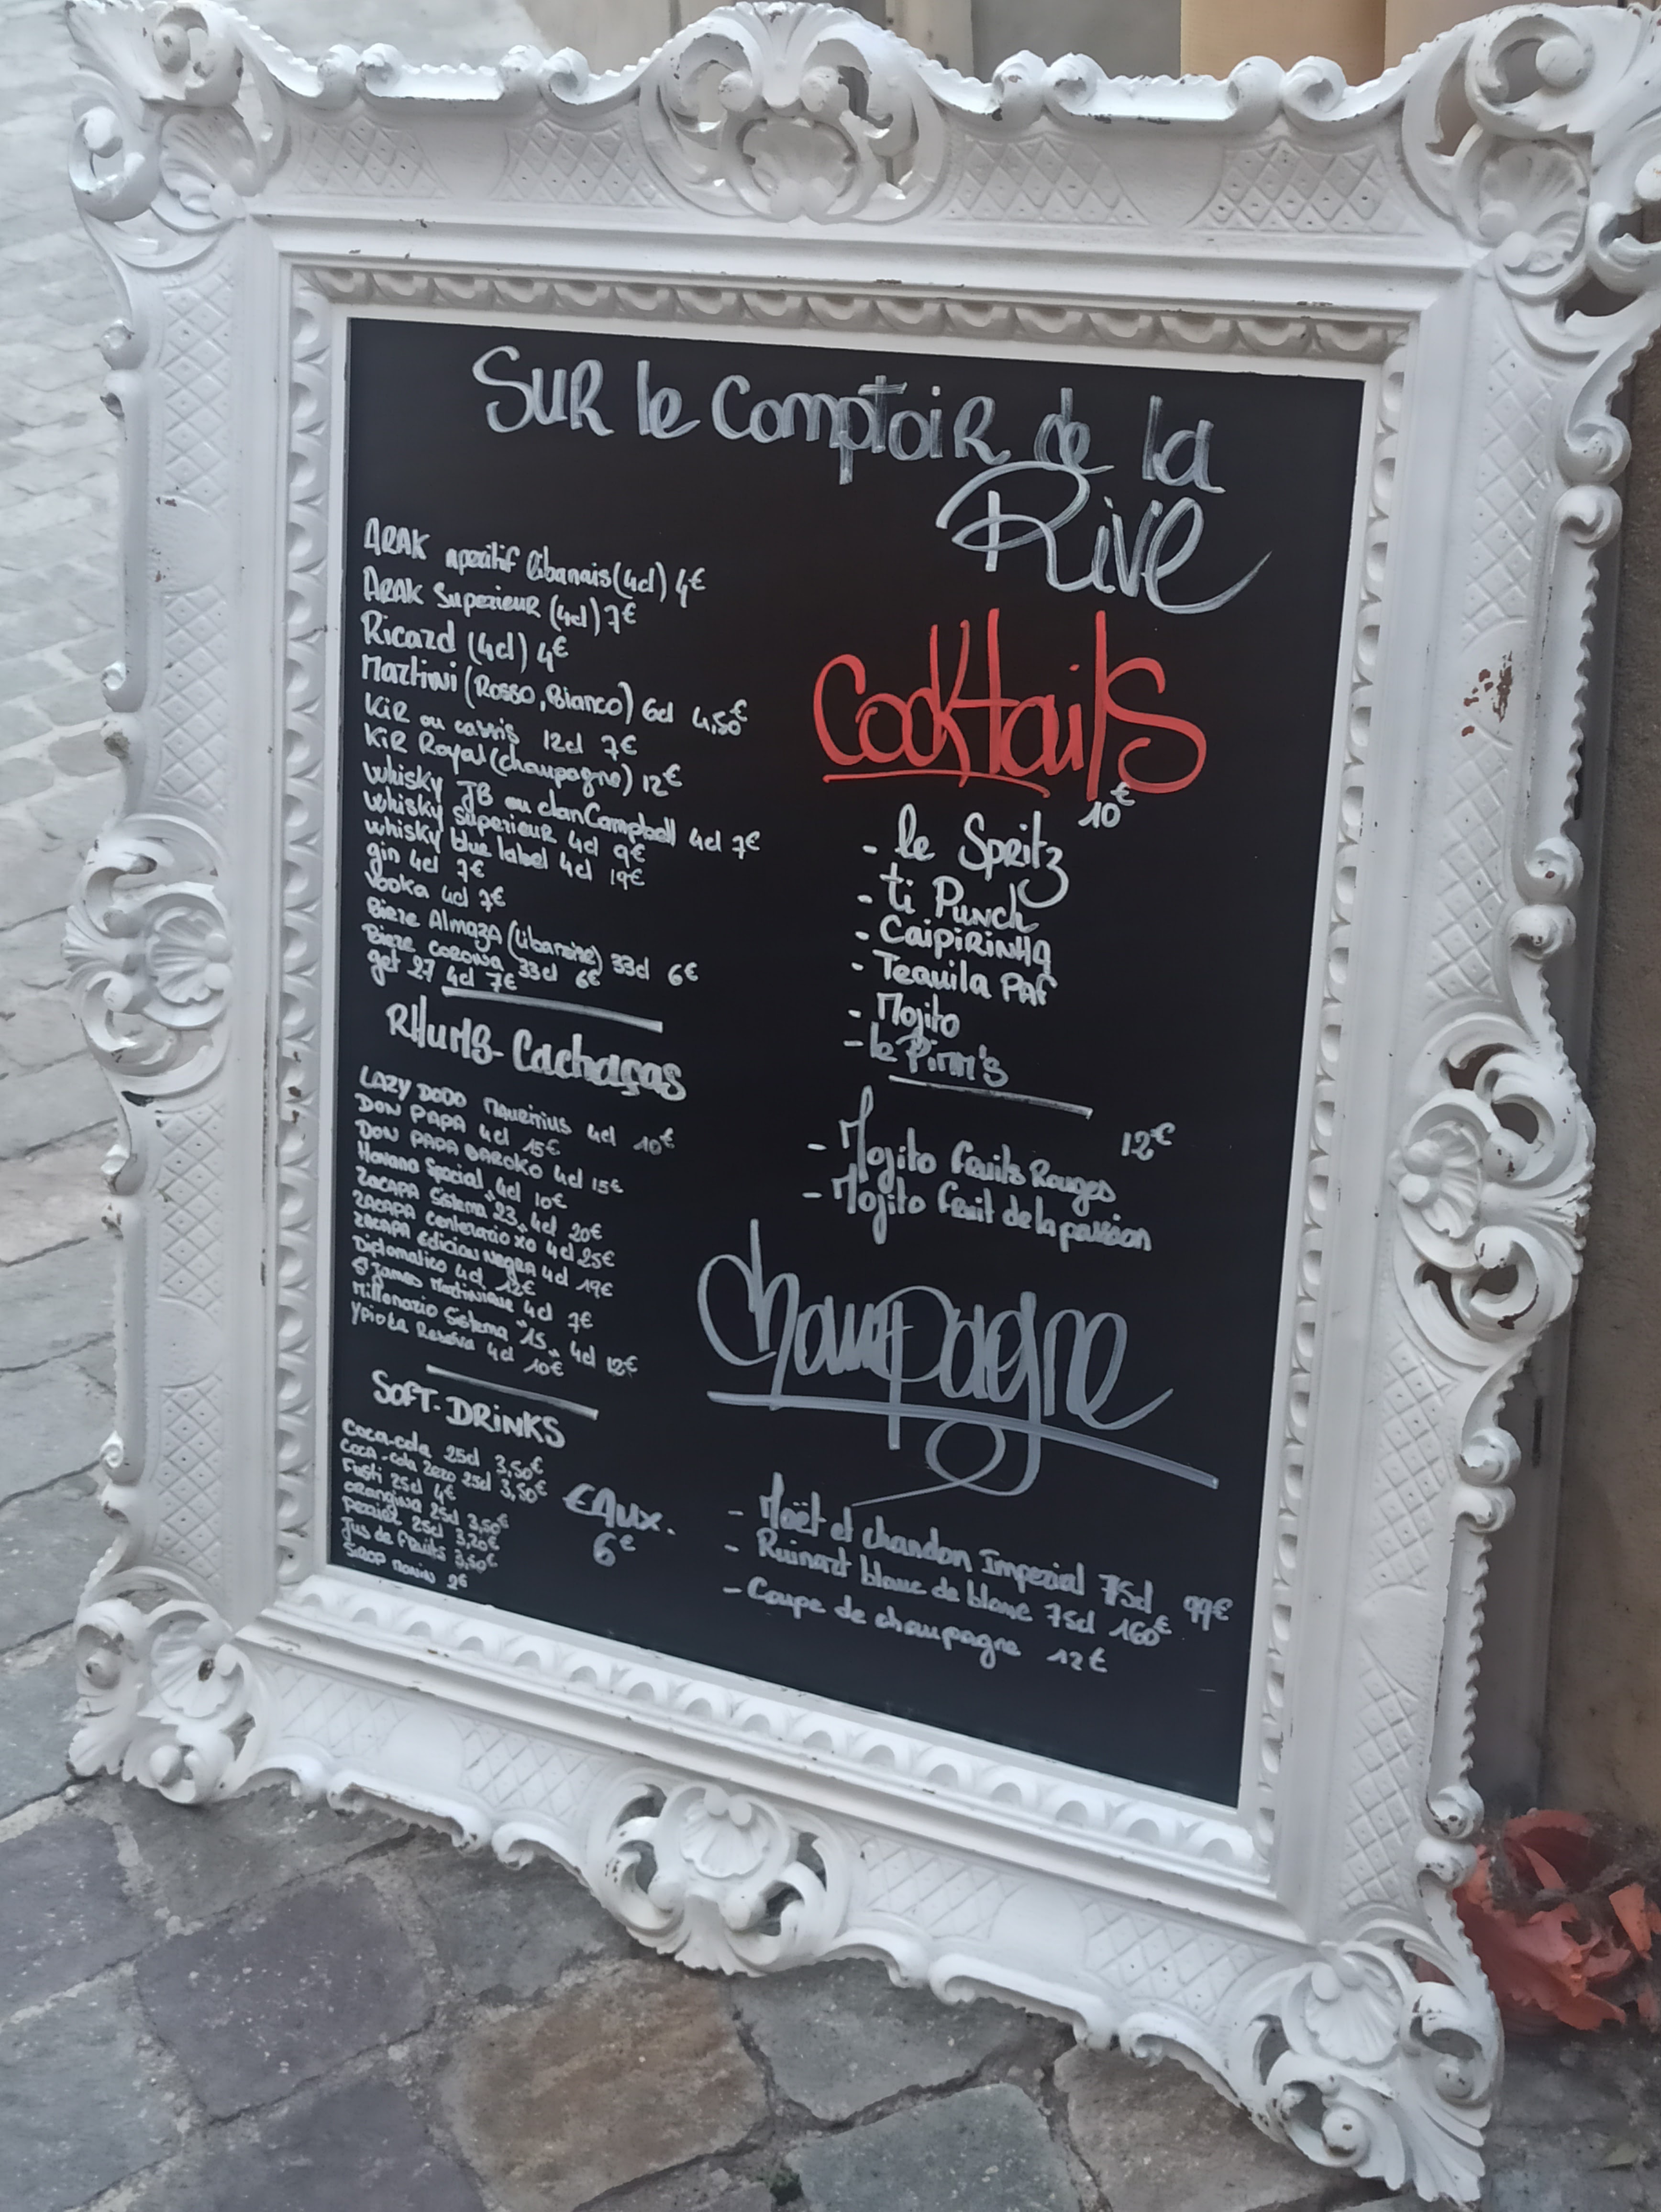 SUR le Comptoir de la
Rive
ARAK aperitif libanais (4cl) 4€
ARAK Superieur (4cl) 7€
Ricard (4cl) 4€
Martini (Rosso, Bianco) 6cl 4,50€
KiR ou cassis 12cl 7€
KiR Royal (champagne) 12€
Whisky JB ou clan Campbell 4cl 7€
Whisky superieur 4cl 9€
whisky blue label 4cl 19€
gin 4cl 7€
Vodka 4cl 7€
Biere Almaza (libanaise) 33cl 6€
Biere CORONA 33cl 6€
get 27 4cl 7€
RHuMS- Cachaças
LAZY DODO Mauritius 4cl 10€
DON PAPA 4cl 15€
DON PAPA BAROKO 4cl 15€
Havana Special 4cl 10€
ZACAPA Sistema "23" 4cl 20€
ZACAPA centenario XO 4cl 25€
ZACAPA Edicion NEGRA 4cl 19€
Diplomatico 4cl 12€
St James Martinique 4cl 7€
Millonario Sistema "15" 4cl 12€
Ypioca Reserva 4cl 10€
SOFT-DRiNKS
Coca-cola 25cl 3,50€
COCA-cola Zero 25cl 3,50€
Fusti 25cl 4€
orangina 25cl 3,50€
perrier 25cl 3,20€
Jus de fruits 3,50€
SiROP MONiN 2€
EAUX.
6€
Cocktails
10€
- le Spritz
- ti Punch
- CAiPiRiNHA
- Tequila PAF
- Mojito
- le Pimm's
12€
- Mojito fruits Rouges
- Mojito fruit de la passion
Champagne
- Moët et chandon Imperial 75cl 99€
- Ruinart blanc de blanc 75cl 160€
- Coupe de champagne 12€